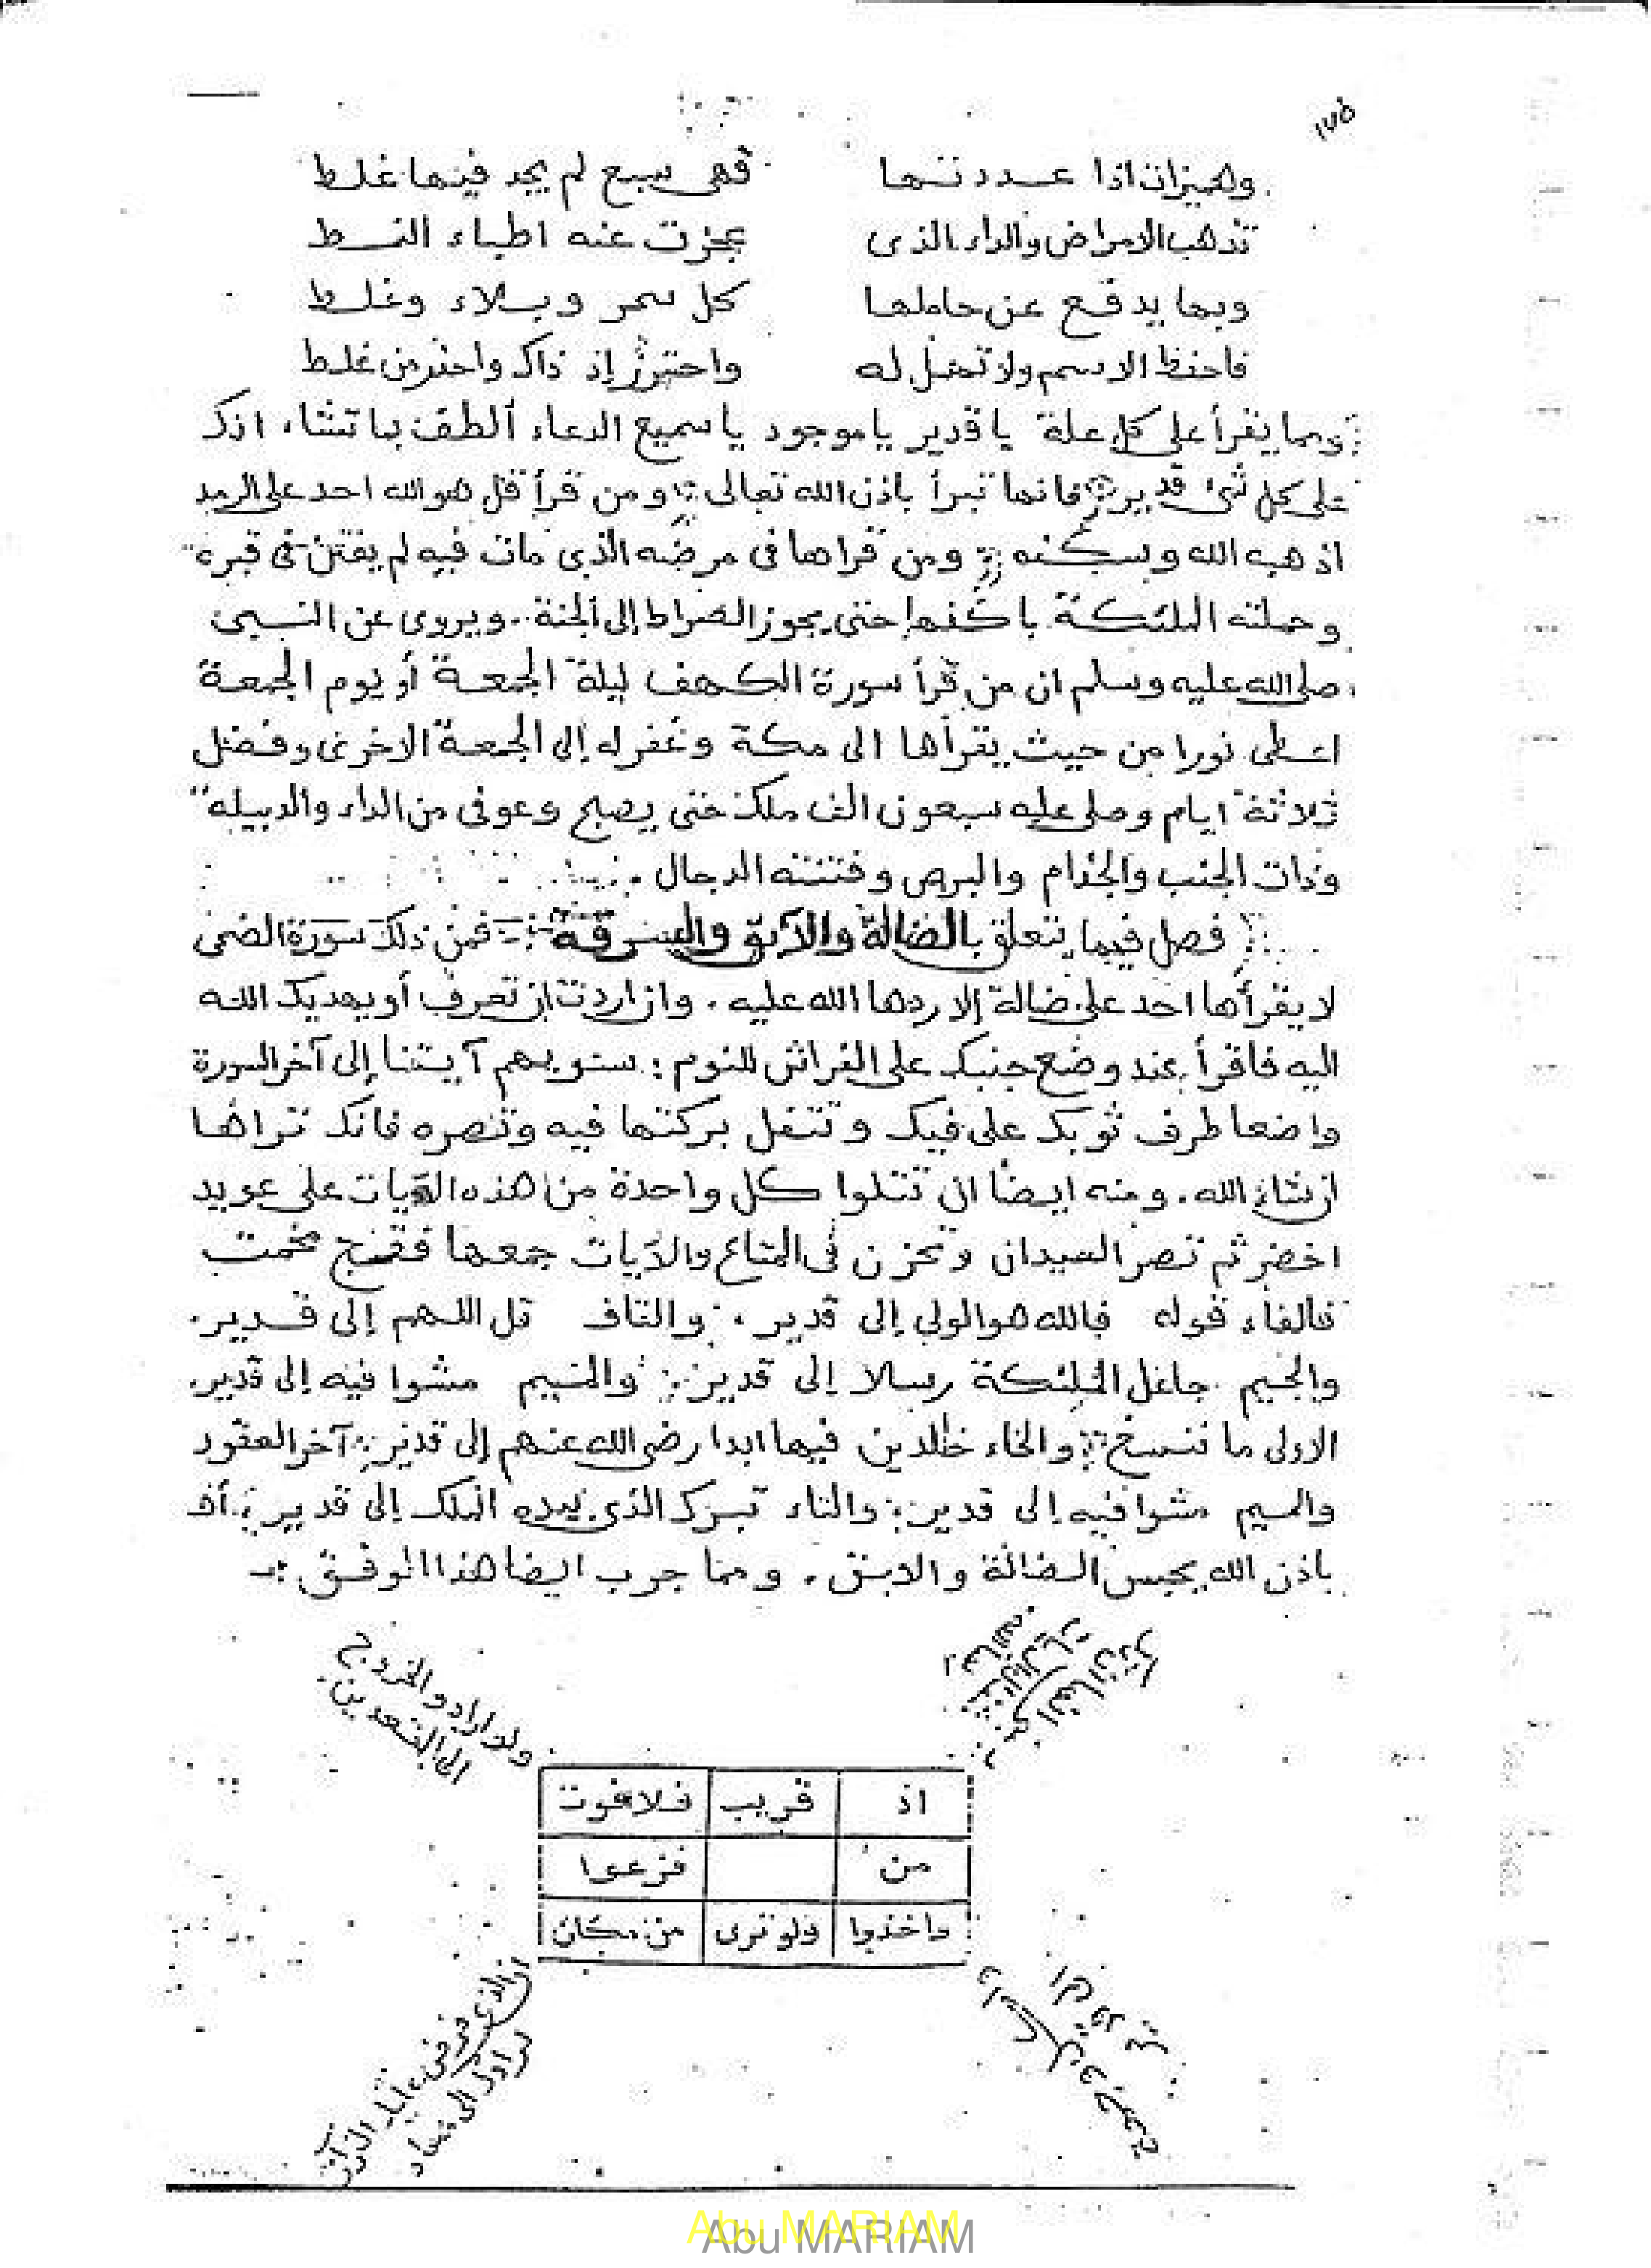 ١٧٥
ولهميزان اذا عددتها فهى سبع لم يجد فيها غلط
تذهب الامراض والداء الذى عجزت عنه اطباء القسط
وبها يدفع عن حاملها كل سحر وبلاء وغلط
فاحفظ الاسم ولا تحفل له واحترز إذ ذاك واحذر من غلط
ومما يقرأ على كل علة يا قدير يا موجود يا سميع الدعاء ألطف بما تشاء، انك
على كل شئ قدير فانها تبرأ باذن الله تعالى ومن قرأ قل هو الله احد على الرمد
اذهبه الله وسكنه ومن قراها فى مرضه الذى مات فيه لم يفتن فى قبره
وحملته الملئكة باكفها حتى يجوز الصراط إلى الجنة. ويروى عن النبى
صلى الله عليه وسلم ان من قرأ سورة الكهف ليلة الجمعة أو يوم الجمعة
اعطى نورا من حيث يقرأها الى مكة وغفر له إلى الجمعة الاخرى وفضل
ثلاثة ايام وصلى عليه سبعون الف ملك حتى يصبح وعوفى من الداء والدبيله
وذات الجنب والجذام والبرص وفتنته الدجال.
فصل فيما يتعلق بالضالة والآبق والسرقة :- فمن ذلك سورة الضحى
لا يقرأها احد على ضالة إلا ردها الله عليه. وان اردت ان تعرف أو يهديك الله
اليه فاقرأ عند وضع جنبك على الفراش للنوم: سنريهم آيتنا إلى آخر السورة
واضعا طرف ثوبك على فيك وتتفل بركتها فيه وتصره فانك تراها
ان شاء الله. ومنه ايضا ان تتلوا كل واحدة من هذه الآيات على عويد
اخضر ثم تصر العيدان وتخزن فى المتاع والآيات جمعها فقج مخمت
فالفاء قوله فالله هو الولي إلى قدير. والقاف قل اللهم إلى قدير.
والجيم جاعل الملئكة رسلا إلى قدير والميم مشوا فيه إلى قدير.
الاولى ما ننسخ والخاء خلدين فيها ابدا رضى الله عنهم إلى قدير آخر العقود
والميم مشوا فيه إلى قدير: والتاء تبرك الذى بيده الملك إلى قدير
باذن الله يحبس الضالة والابق. ومما جرب ايضا هذا الوفق :-
ولو ارادو الخروج
الى القعدين
اذ قريب فلا فوت
من فزعوا
واخذوا ولو ترى من مكان
ان الذى فرض عليك القرآن
لرادك الى معاد
Abu MARIAM
Abu MARIAM